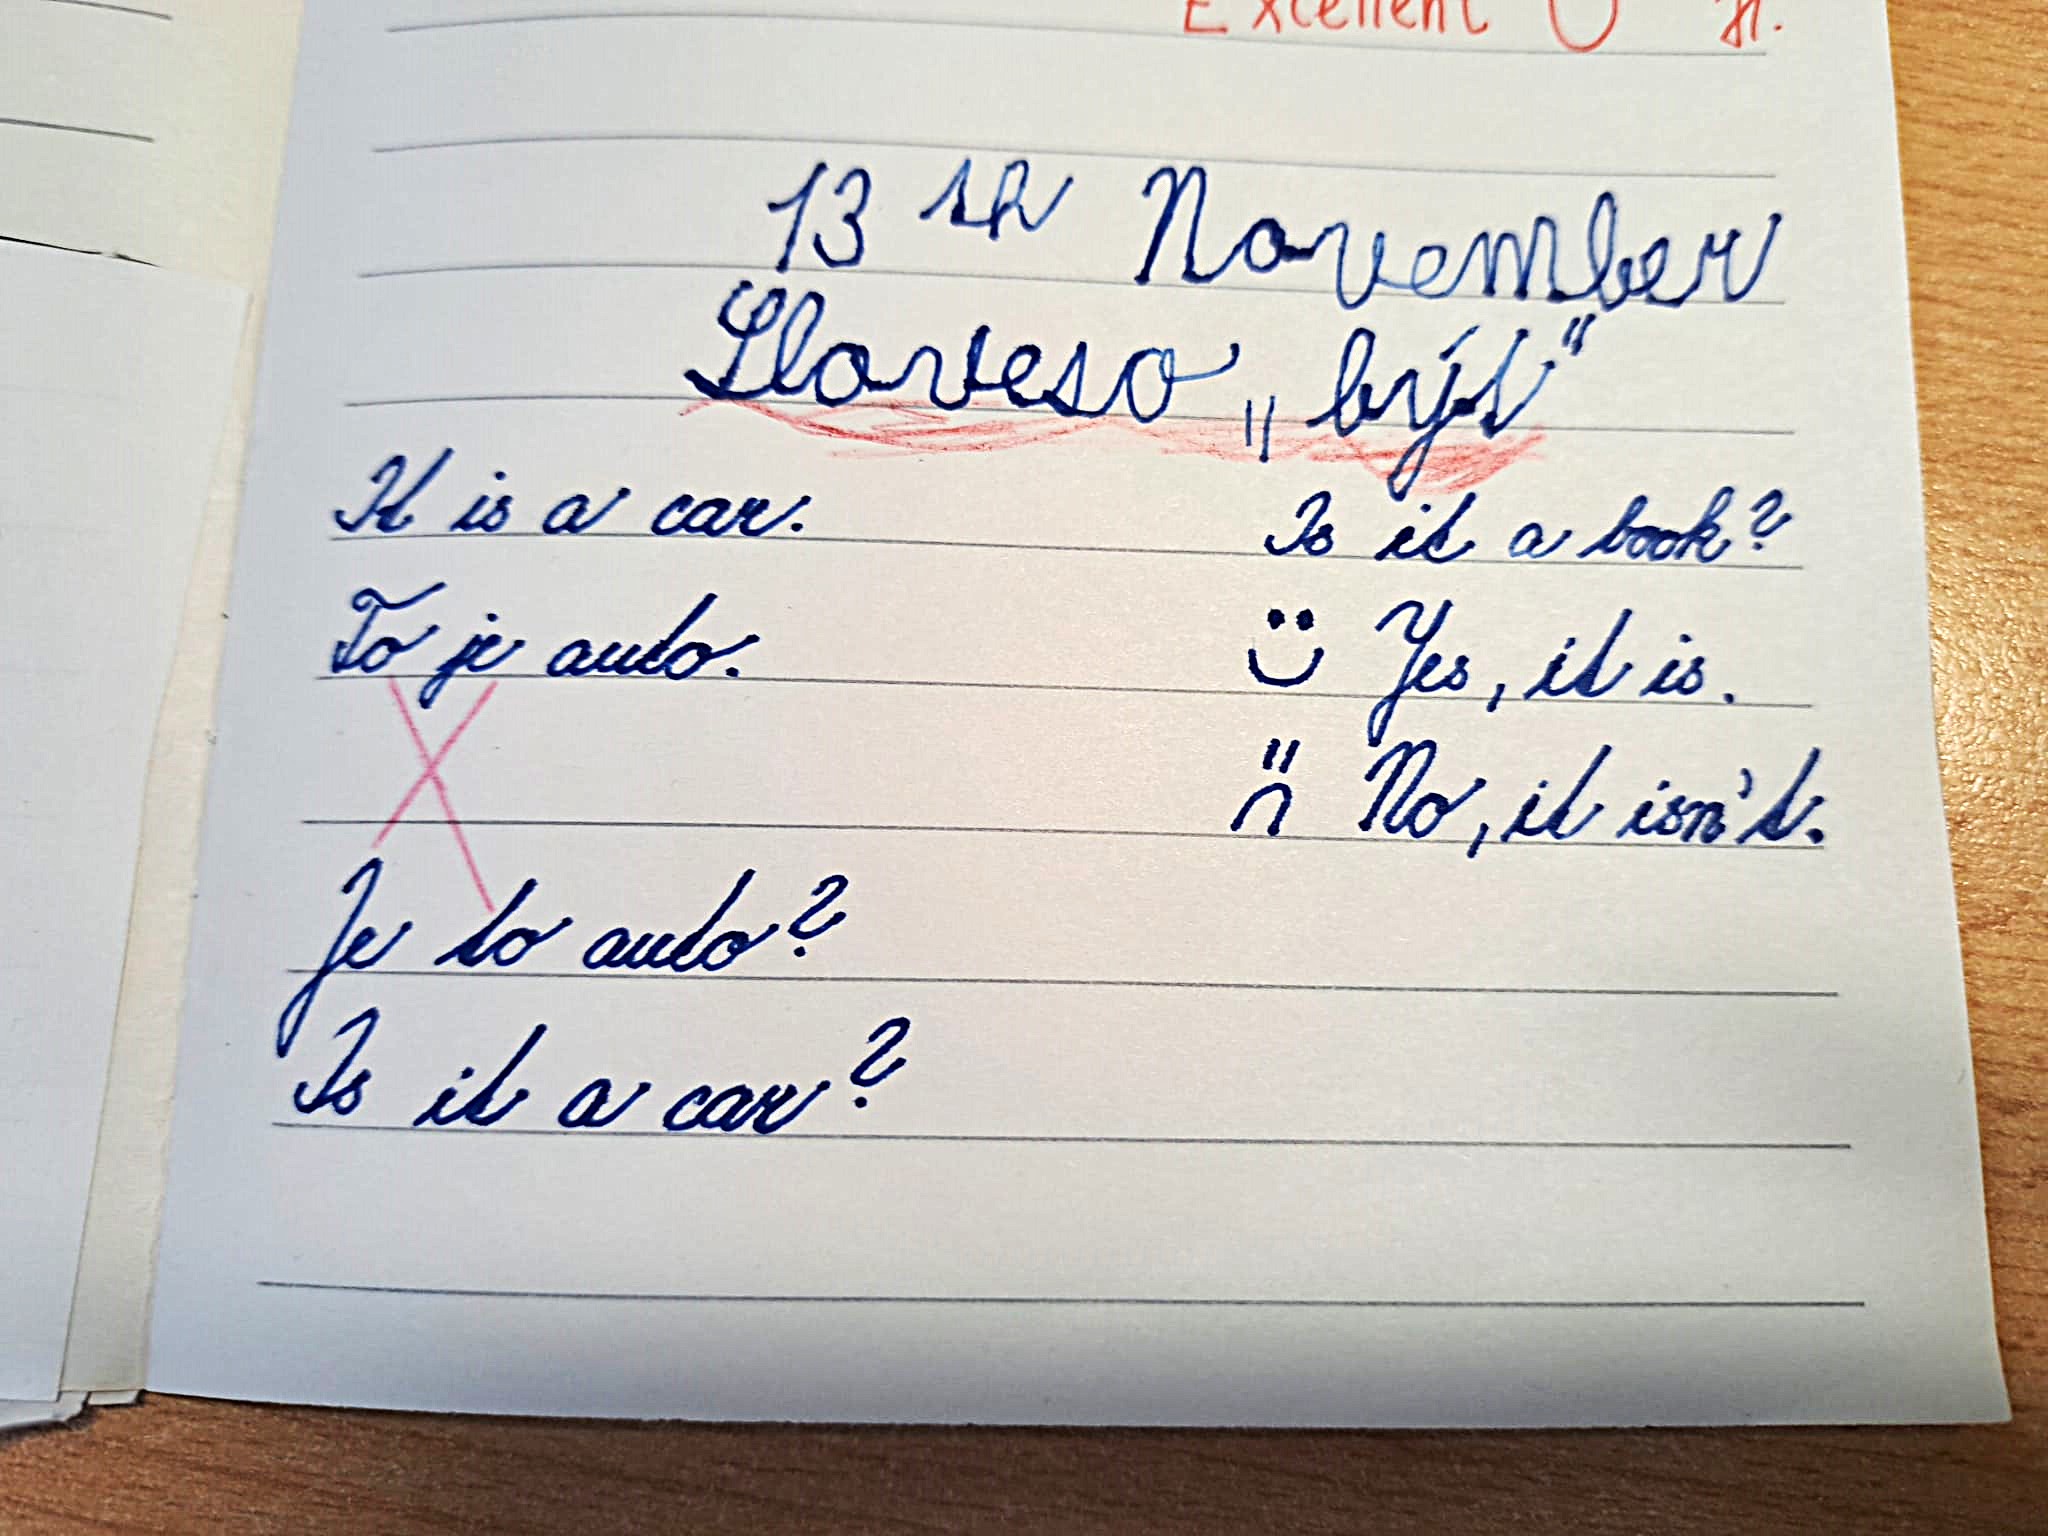 Excellent H.
13th November
Sloveso „být"
It is a car.
To je auto.
Je to auto?
Is it a car?
Is it a book?
Yes, it is.
No, it isn't.